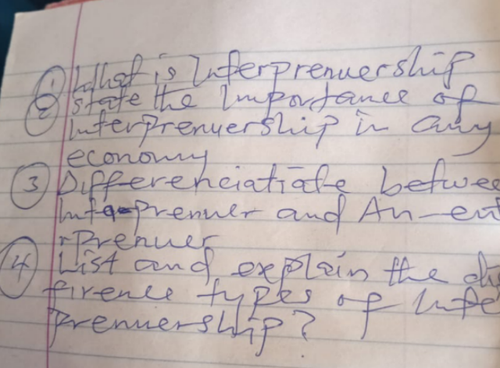 ① What is Interprenuership
② state the Importance of
Interprenuership in any
economy
③ Differenciatiate betwee
Inta-prenuer and An-ent
rprenuer
④ List and explain the di
firence types of Inte
prenuership?